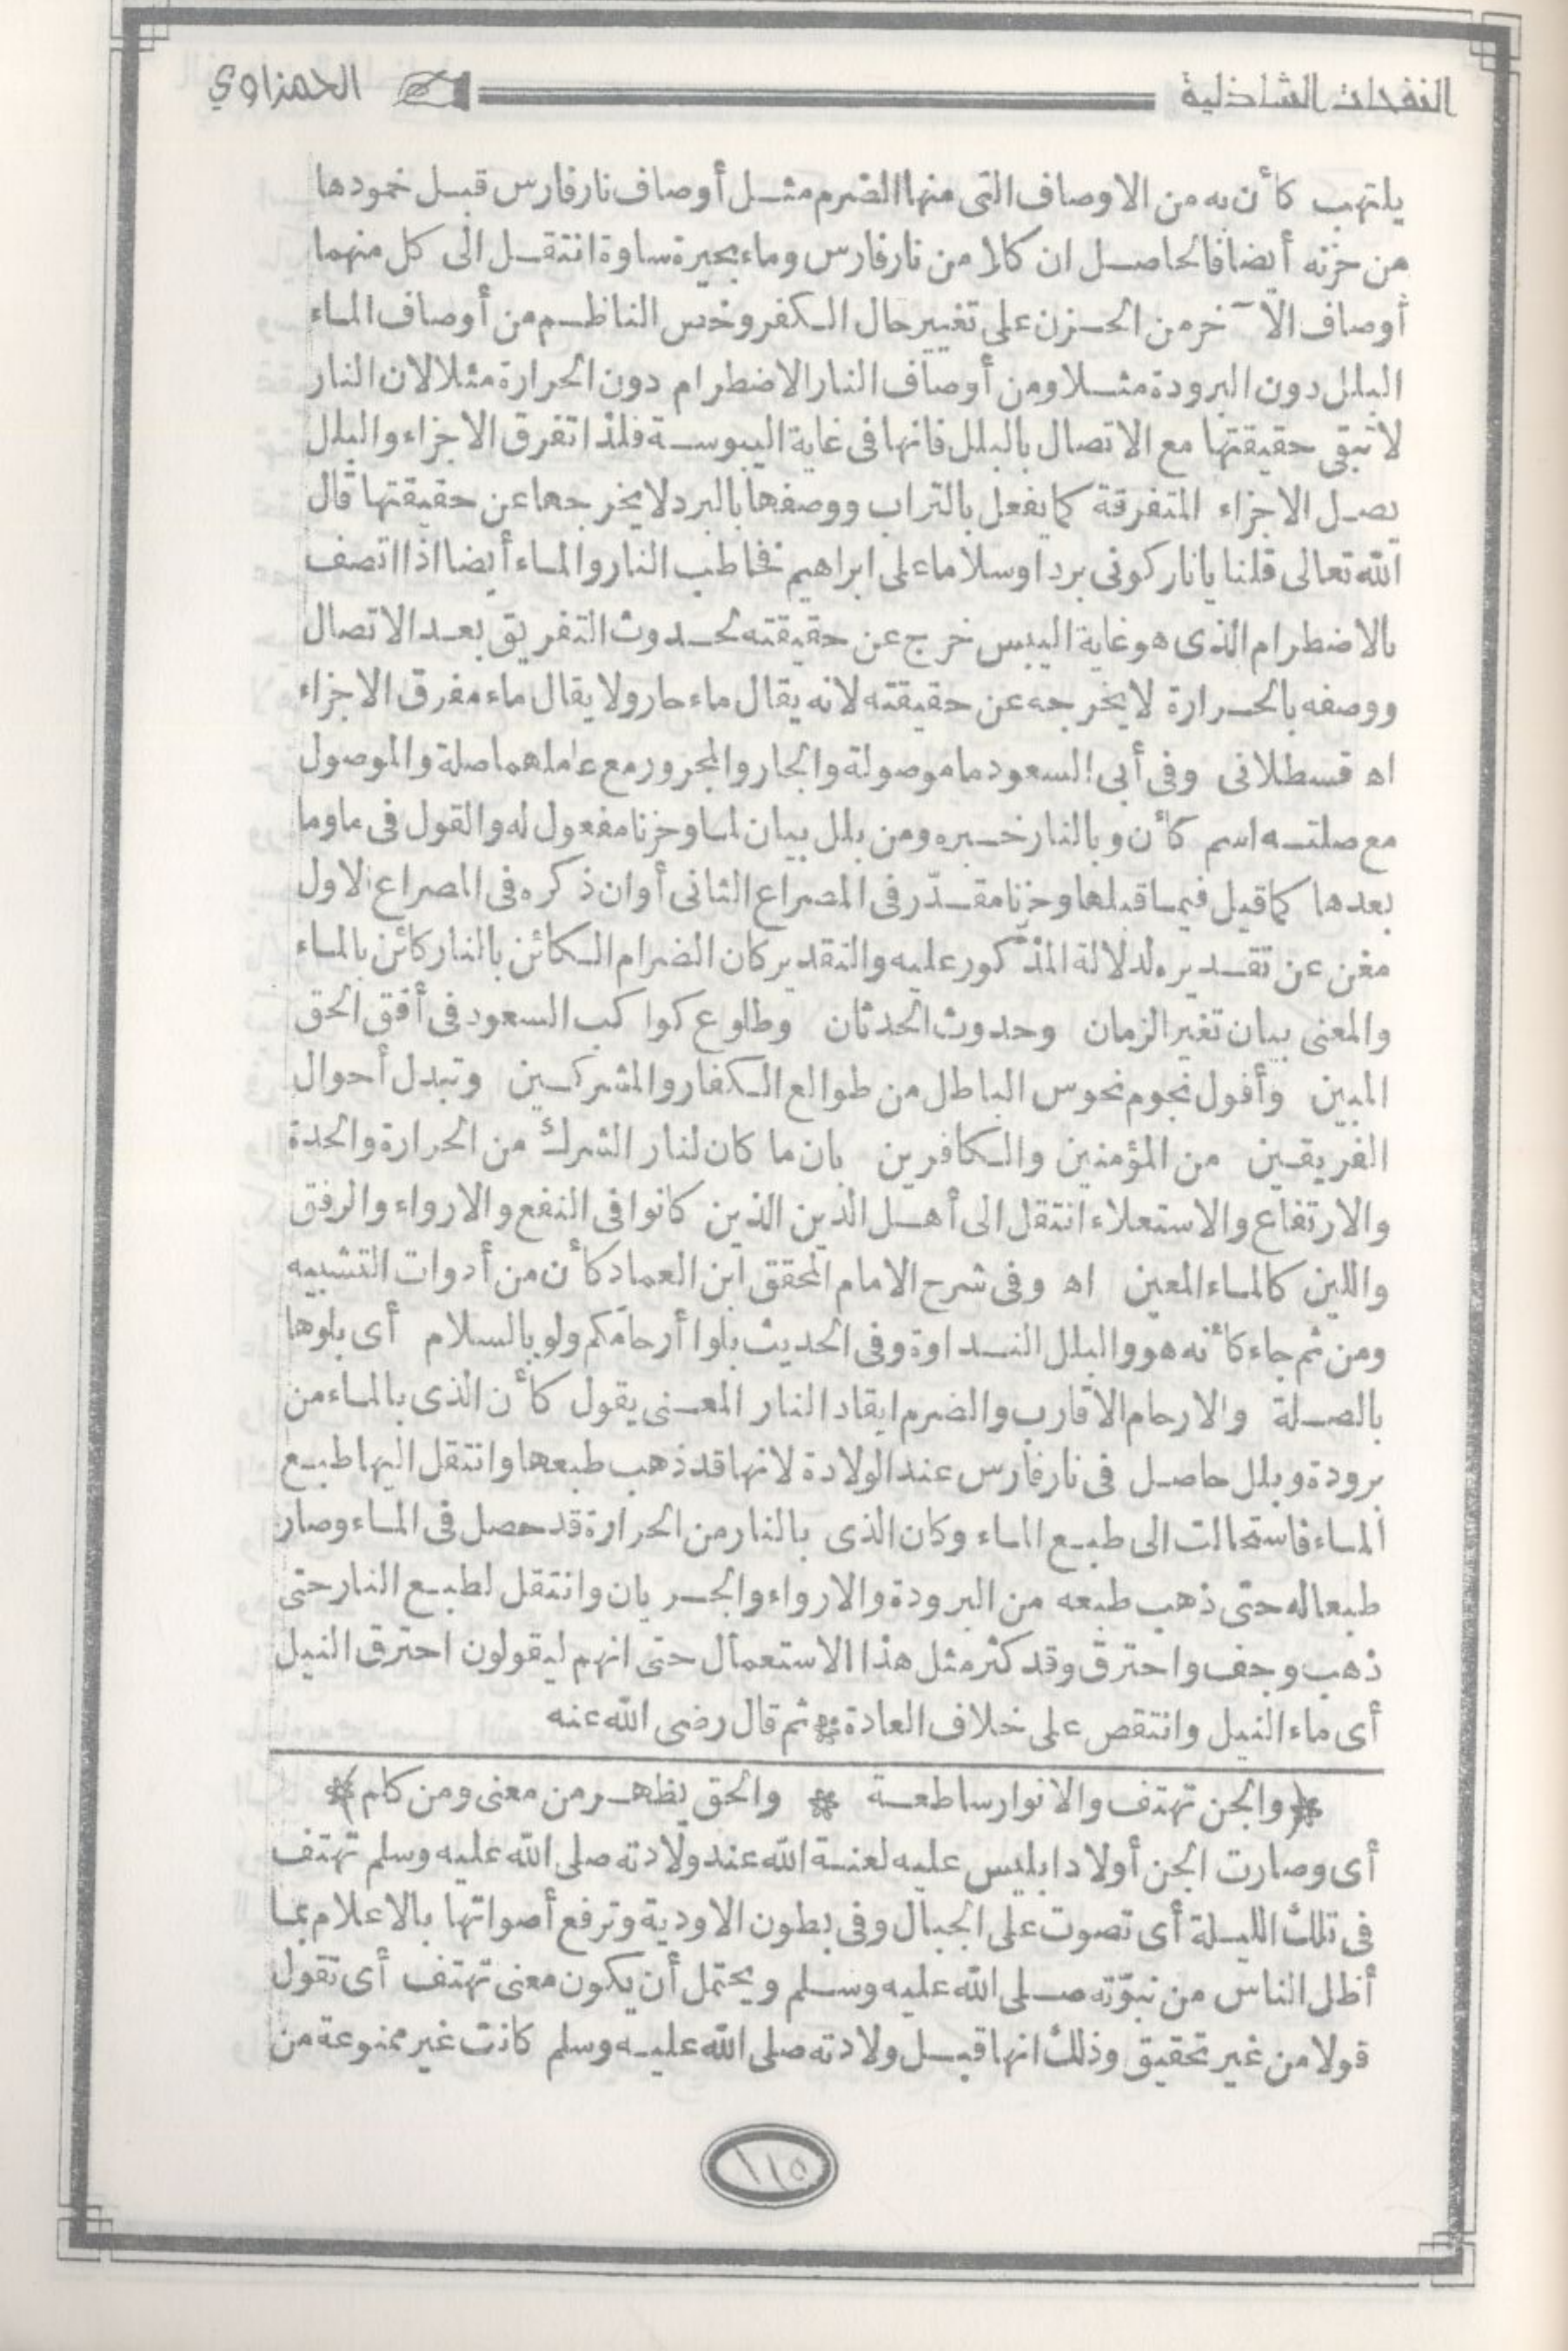 النفحات الشاذلية
الحمزاوي
يلتهب كأن به من الاوصاف التى منها الضرم مثل أوصاف نار فارس قبل خمودها
من حزنه أيضا فالحاصل ان كلا من نار فارس وماء بحيرة ساوة انتقل الى كل منهما
أوصاف الآخر من الحزن على تغيير حال الكفر وخص الناظم من أوصاف الماء
البلل دون البرودة مثلا ومن أوصاف النار الاضطرام دون الحرارة مثلا لان النار
لا تبقى حقيقتها مع الاتصال بالبلل فانها فى غاية اليبوسة فلذا تفرق الاجزاء والبلل
يصل الاجزاء المتفرقة كما يفعل بالتراب ووصفها بالبرد لا يخرجها عن حقيقتها قال
الله تعالى قلنا يا نار كونى بردا وسلاما على ابراهيم فخاطب النار والماء أيضا اذا اتصف
بالاضطرام الذى هو غاية اليبس خرج عن حقيقته لحدوث التفريق بعد الاتصال
ووصفه بالحرارة لا يخرجه عن حقيقته لانه يقال ماء حار ولا يقال ماء مفرق الاجزاء
اه قسطلانى وفى أبى السعود ما موصولة والجار والمجرور مع عاملهما صلة والموصول
مع صلته اسم كأن وبالنار خبره ومن بلل بيان لما وحزنا مفعول له والقول فى ما وما
بعدها كما قيل فيما قبلها وحزنا مقدّر فى المصراع الثانى أو ان ذكره فى المصراع الاول
مغن عن تقديره لدلالة المذكور عليه والتقدير كان الضرام الكائن بالنار كائن بالماء
والمعنى بيان تغير الزمان وحدوث الحدثان وطلوع كواكب السعود فى أفق الحق
المبين وأفول نجوم نحوس الباطل من طوالع الكفار والمشركين وتبدل أحوال
الفريقين من المؤمنين والكافرين بان ما كان لنار الشرك من الحرارة والحدة
والارتفاع والاستعلاء انتقل الى أهل الدين الذين كانوا فى النفع والارواء والرفق
واللين كالماء المعين اه وفى شرح الامام المحقق ابن العماد كأن من أدوات التشبيه
ومن ثم جاء كأنه هو والبلل النداوة وفى الحديث بلوا أرحامكم ولو بالسلام أى بلوها
بالصلة والارحام الاقارب والضرم ايقاد النار المعنى يقول كأن الذى بالماء من
برودة وبلل حاصل فى نار فارس عند الولادة لانها قد ذهب طبعها وانتقل اليها طبع
الماء فاستحالت الى طبع الماء وكان الذى بالنار من الحرارة قد حصل فى الماء وصار
طبعا له حتى ذهب طبعه من البرودة والارواء والجريان وانتقل لطبع النار حتى
ذهب وجف واحترق وقد كثر مثل هذا الاستعمال حتى انهم ليقولون احترق النيل
أى ماء النيل وانتقص على خلاف العادة * ثم قال رضى الله عنه
﴿والجن تهتف والانوار ساطعة * والحق يظهر من معنى ومن كلم﴾
أى وصارت الجن أولاد ابليس عليه لعنة الله عند ولادته صلى الله عليه وسلم تهتف
فى تلك الليلة أى تصوت على الجبال وفى بطون الاودية وترفع أصواتها بالاعلام بما
أظل الناس من نبوّته صلى الله عليه وسلم ويحتمل أن يكون معنى تهتف أى تقول
قولا من غير تحقيق وذلك انها قبل ولادته صلى الله عليه وسلم كانت غير ممنوعة من
١١٥